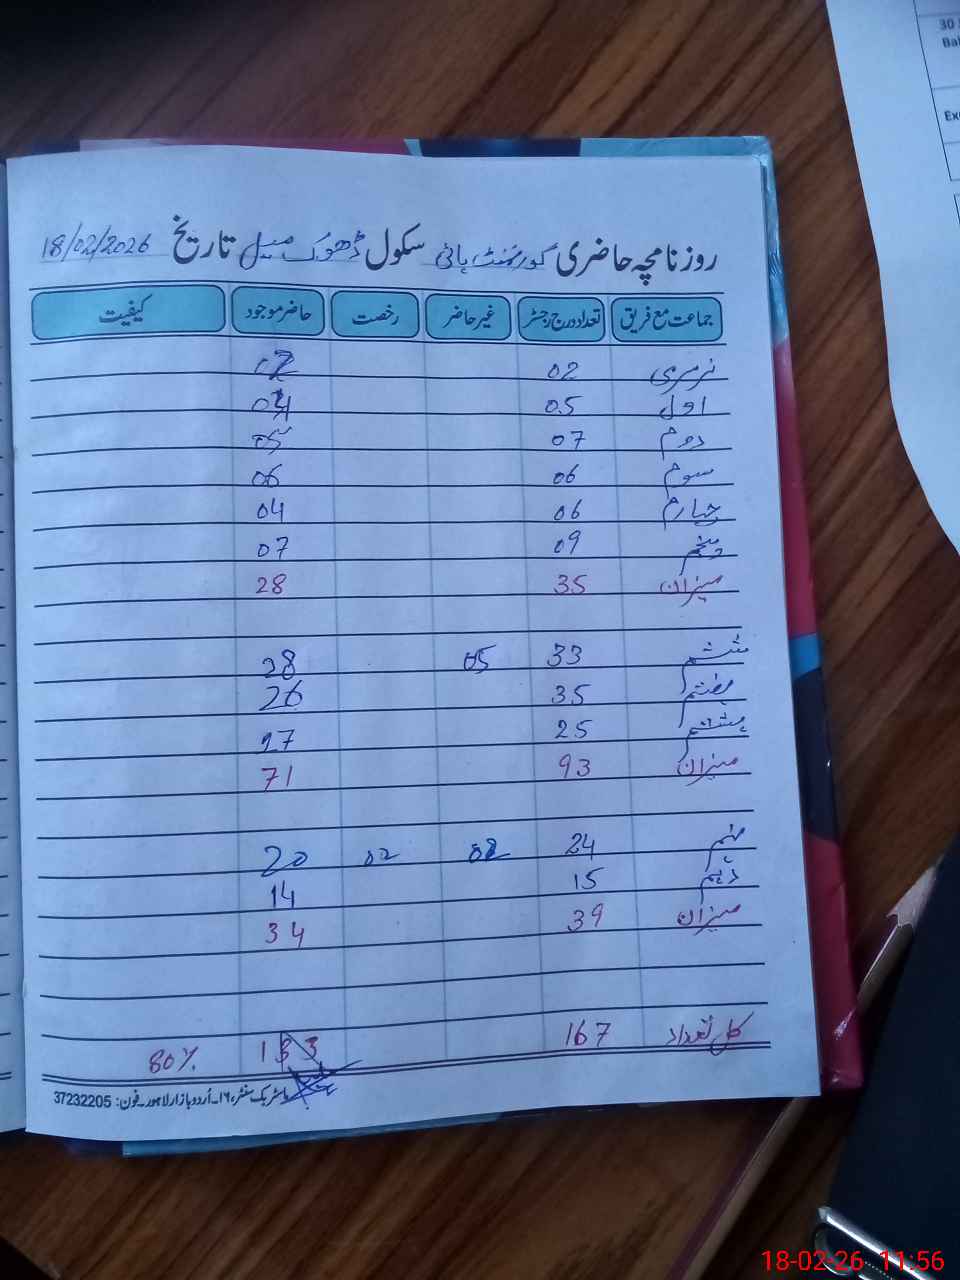 30
Bal
Exe
روزنامچہ حاضری گورنمنٹ ہائی سکول ڈھوک میل تاریخ 18/02/2026
جماعت مع فریق تعداد درج رجسٹر غیر حاضر رخصت حاضر موجود کیفیت
نرسری 02 02
اول 05 04
دوم 07 05
سوم 06 06
چہارم 06 04
پنجم 09 07
میزان 35 28
ششم 33 05 28
ہفتم 35 26
ہشتم 25 17
میزان 93 71
نہم 24 02 02 20
دہم 15 14
میزان 39 34
کل تعداد 167 133 80%
ماسٹر بک سنٹر، ۱۶۔اُردو بازار لاہور۔فون: 37232205
18-02-26 11:56